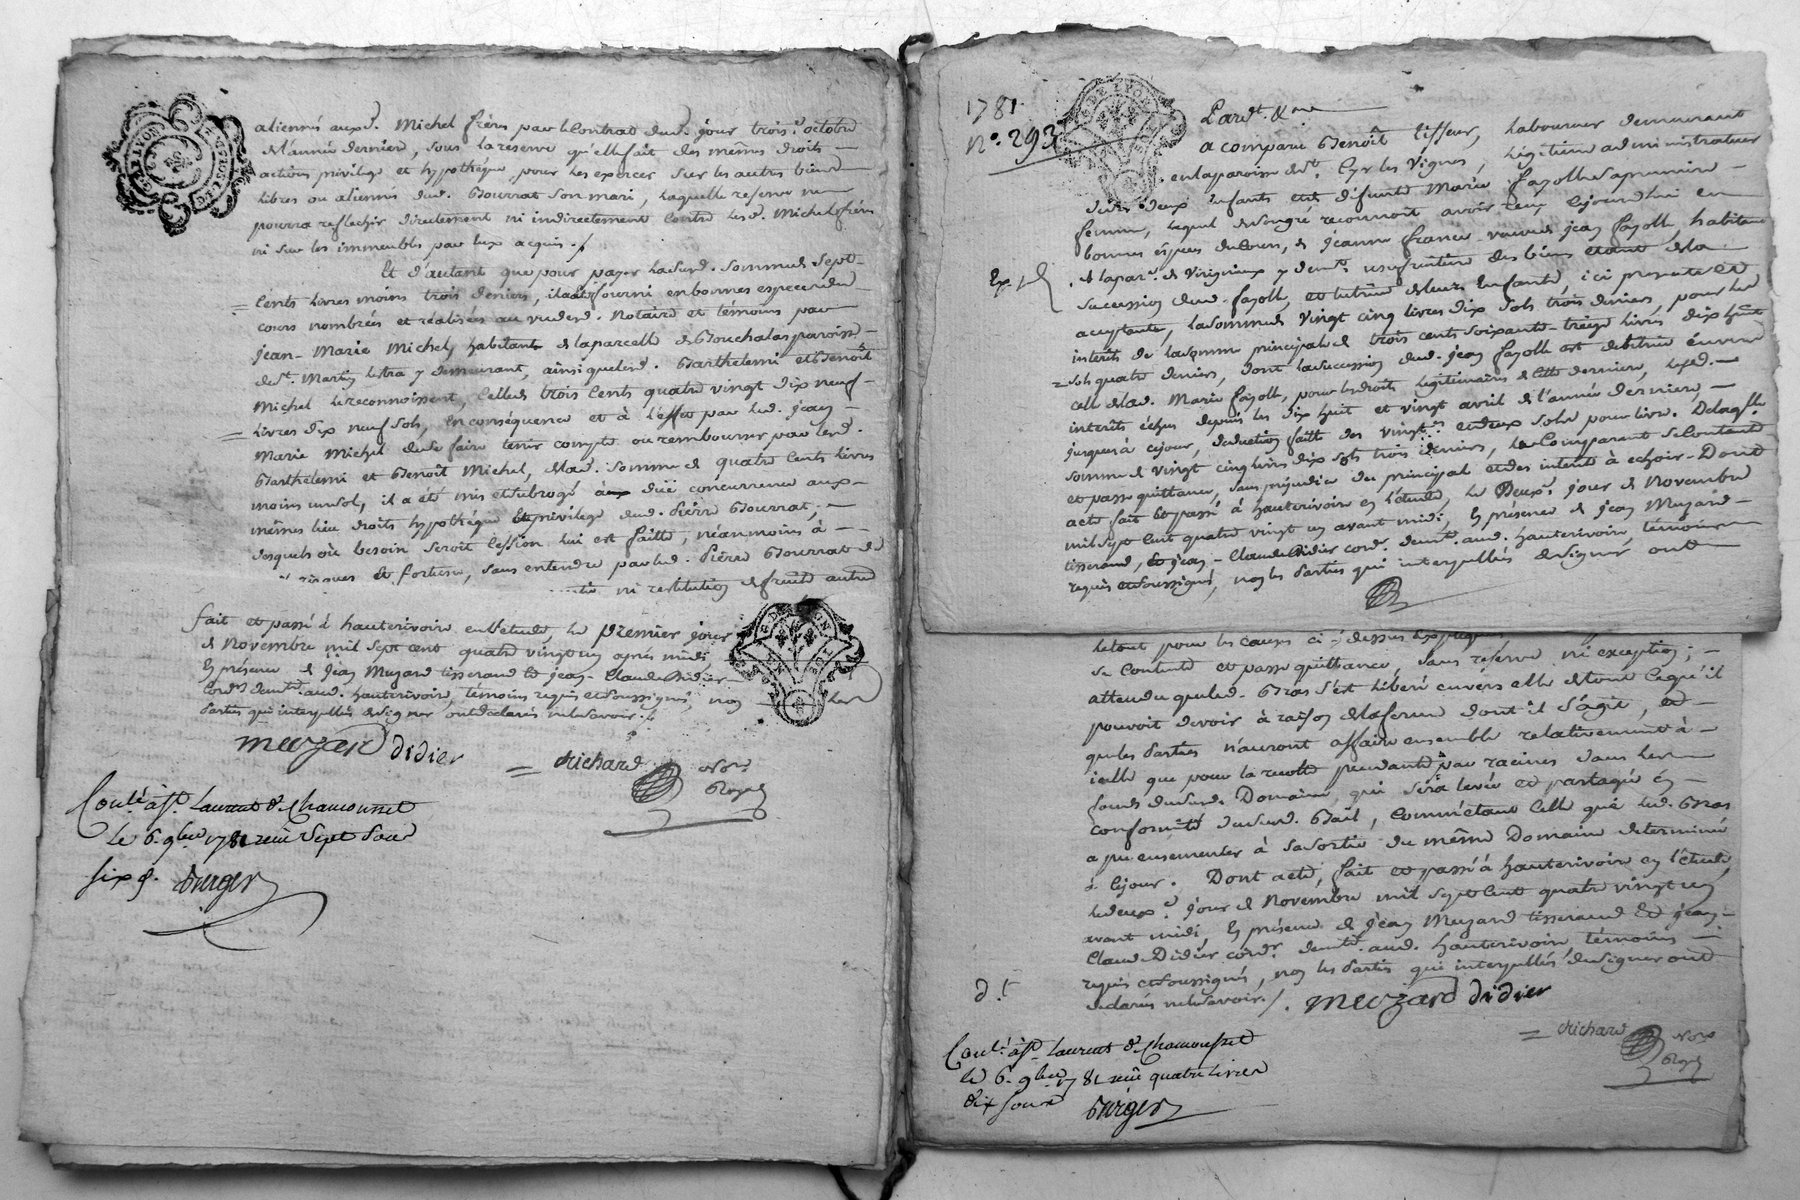 aliennés auxd. Michel frères par le Contrat dud. jour trois.e octobre
de l'année derniere, sous la réserve qu'elle fait des mêmes droits
actions privilege et hypothéque pour les exercer sur les autres biens
libres ou aliennés dud. Bourrat son mari, laquelle reserve ne
pourra reflechir directement ni indirectement Contre lesd. Michel frères
ni sur les immeubles par eux acquis./.
Et d'autant que pour payer lad. somme de Sept-
Cents livres moins trois deniers, il a été fourni en bonnes especes de
cours nombrées et réalisées au vu de. Notaire et témoins par
jean-Marie Michel, habitant de la parcelle de Bouchalas paroisse
de St. Martin lestra y demeurant, ainsi que lesd. Barthelemi et Benoît
Michel le reconnoissent, Celle de trois Cents quatre vingt dix neuf
livres dix neuf sols, en conséquence et à l'effet par led. jean
Marie Michel de se faire tenir compte ou rembourser par lesd.
Barthélemi et Benoît Michel, de lad. somme de quatre Cents livres
moins un sol, il a été mis et subrogé à düe concurrence aux
mêmes lieu droits hypothéque et privilege dud. Pierre Bourrat,
desquels où besoin seroit Cession lui est faitte, néanmoins à
risques et fortune, sans entendre par led. Pierre Bourrat de
ni restitution de fruits autre
fait et passé à hauterivoire en l'étude, le premier jour
de Novembre mil sept cent quatre vingt un après midi
En présence de jean Muzard tisserand et jean-Claude Didier
Cord.r demt. aud. hauterivoire, témoins requis et soussignés, non les
Parties qui interpellées de signer ont déclarés ne le savoir./.
muzard didier
Richard Nore
Royal
Conlé à St Laurent de Chamousset
le 6. 9bre 1781 reçu Sept Sous
six d. Burger
1781
N.o 293
Pardt. &ne
a comparu Benoît tisseur, laboureur demeurant
en la paroisse de St. Cyr les Vignes, légitime administrateur
de ses deux Enfants et de défunte Marie fayolle sa premiere
femme, lequel de son gré reconnoit avoir reçu cejourd'hui en
bonnes espèces de cours, de jeanne france veuve de jean fayolle, habitante
de la parse. de Virigneux y demte. usufruitiere des biens étant de la
Ex
succession dud. fayolle, et tutrice de leurs Enfants, ici presente et
acceptante, la somme de vingt cinq livres dix sols trois deniers, pour les
intérêts de la somme principale de trois cent soixante-treize livres dix huit
sols quatre deniers, dont la succession dud. jean fayolle est debitrice envers
celle de lad. Marie fayolle, pour les droits légitimaires de cette derniere, lesd.
interêts échus depuis les dix huit et vingt avril de l'année derniere,
jusques à cejour, deduction faitte des vingt.es et deux sols pour livre. De laqlle.
somme de vingt cinq livres dix sols trois deniers, le Comparant se Contente
et passe quittance, sans prejudice du principal et des interêts à echoir. Dont
acte fait et passé à hauterivoire en l'étude, le Deux.e jour de Novembre
mil sept Cent quatre vingt un avant midi, En présence de jean Muzard
tisserand, et jean-Claude Didier cord.r demt. aud. hauterivoire, témoins
requis et soussignés, non les Parties qui interpellées de signer ont
le tout pour les causes ci-dessus
se Contente et passe quittance, sans réserve ni exception;
attendu que led. Bras s'est libéré envers elle de tout ce qu'il
pouvoit devoir à raison de la ferme dont il s'agit, et
que les Parties n'auront affaire ensemble relativement à
icelle que pour la recolte pendante par racines dans les
fonds dud. Domaine, qui sera levée et partagée en
conformité dud. Bail, comm'étant Celle que led. Bras
a pu ensemencer à sa sortie du même Domaine determinée
à cejour. Dont acte, fait et passé à hauterivoire en l'étude
le deux.e jour de Novembre mil sept Cent quatre vingt un
avant midi, En présence de jean Muzard tisserand et jean-
Claude Didier cord.r demt. aud. hauterivoire, témoins
requis et soussignés, non les Parties qui interpellées de signer ont
déclarés ne le savoir./. muzard didier
Richard Nore
Royal
Conlé à St Laurent de Chamousset
le 6. 9bre 1781 reçu quatre livres
dix sous Burger